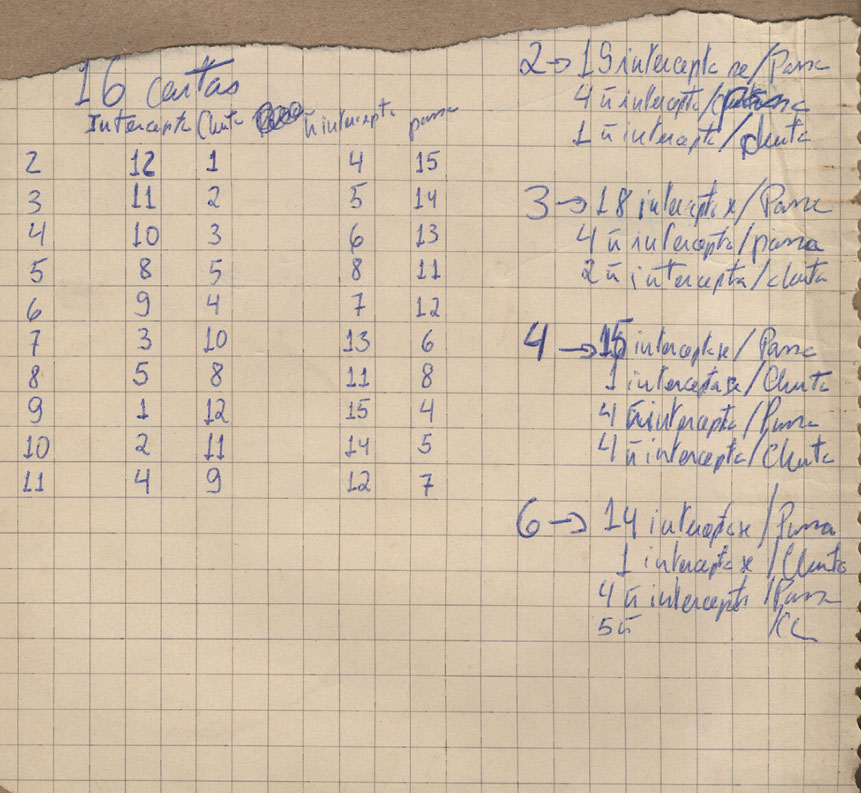 16 cartas
Intercepta Chuta ñ intercepta passa
2 12 1 4 15
3 11 2 5 14
4 10 3 6 13
5 8 5 8 11
6 9 4 7 12
7 3 10 13 6
8 5 8 11 8
9 1 12 15 4
10 2 11 14 5
11 4 9 12 7
2→ 19 intercepta se/Passa
4 ñ intercepta/passa
1 ñ intercepta/chuta
3→ 18 intercepta se/Passa
4 ñ intercepta/passa
2 ñ intercepta/chuta
4→ 15 intercepta se/Passa
1 intercepta se/Chuta
4 ñ intercepta/Passa
4 ñ intercepta/Chuta
6→ 14 intercepta se/Passa
1 intercepta se/Chuta
4 ñ intercepta/Passa
5 ñ